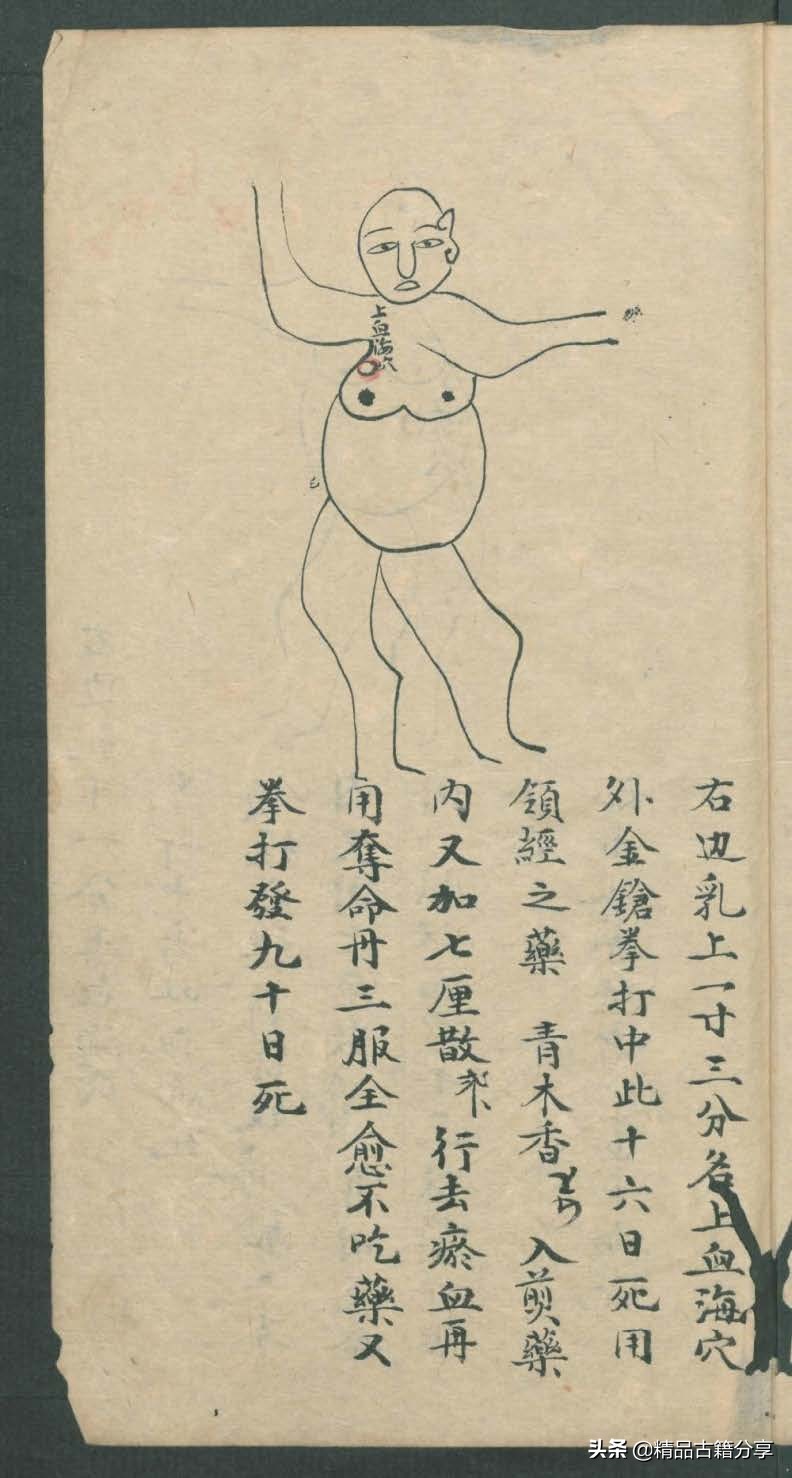 上血海穴
右边乳上一寸三分名上血海穴
外金鎗拳打中此十六日死用
領經之藥 青木香 入煎藥
内又加七厘散 行去瘀血再
用奪命丹三服全愈不吃藥又
拳打發九十日死
头条 @精品古籍分享